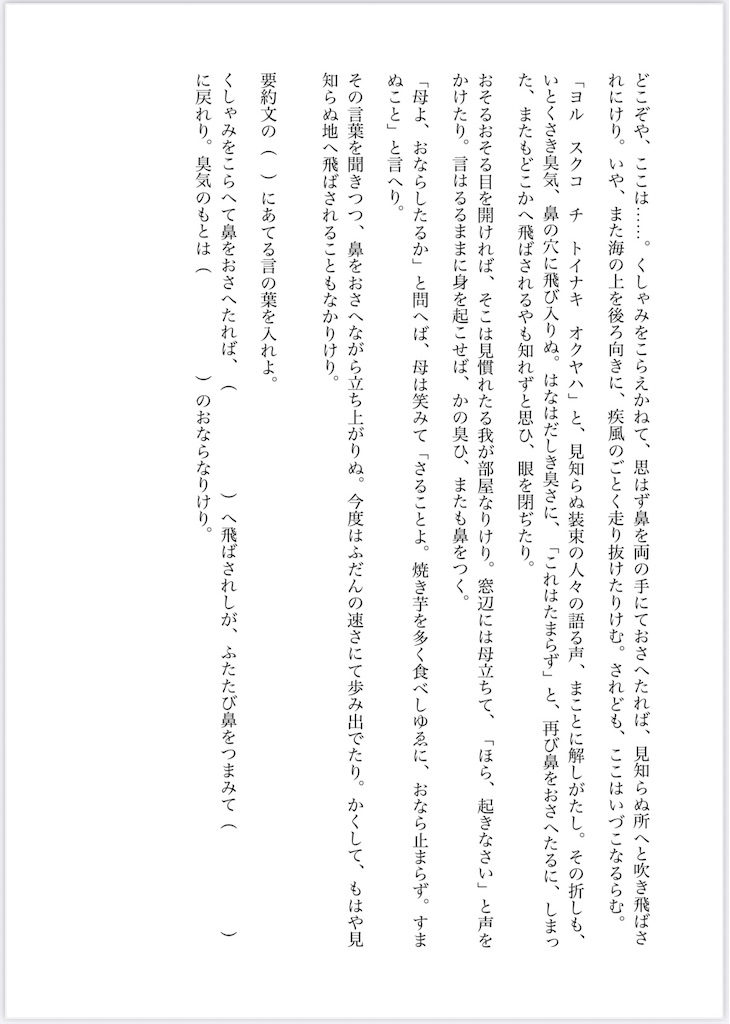 どこぞや、ここは……。くしゃみをこらえかねて、思はず鼻を両の手にておさへたれば、見知らぬ所へと吹き飛ばさ
れにけり。いや、また海の上を後ろ向きに、疾風のごとく走り抜けたりけむ。されども、ここはいづこなるらむ。
「ヨル　スクコ　チ　トイナキ　オクヤハ」と、見知らぬ装束の人々の語る声、まことに解しがたし。その折しも、
いとくさき臭気、鼻の穴に飛び入りぬ。はなはだしき臭さに、「これはたまらず」と、再び鼻をおさへたるに、しまっ
た、またもどこかへ飛ばされるやも知れずと思ひ、眼を閉ぢたり。
おそるおそる目を開ければ、そこは見慣れたる我が部屋なりけり。窓辺には母立ちて、「ほら、起きなさい」と声を
かけたり。言はるるままに身を起こせば、かの臭ひ、またも鼻をつく。
「母よ、おならしたるか」と問へば、母は笑みて「さることよ。焼き芋を多く食べしゆゑに、おなら止まらず。すま
ぬこと」と言へり。
その言葉を聞きつつ、鼻をおさへながら立ち上がりぬ。今度はふだんの速さにて歩み出でたり。かくして、もはや見
知らぬ地へ飛ばされることもなかりけり。
要約文の（　）にあてる言の葉を入れよ。
くしゃみをこらへて鼻をおさへたれば、（　　　　　　）へ飛ばされしが、ふたたび鼻をつまみて（　　　　　　）
に戻れり。臭気のもとは（　　　　　　）のおならなりけり。